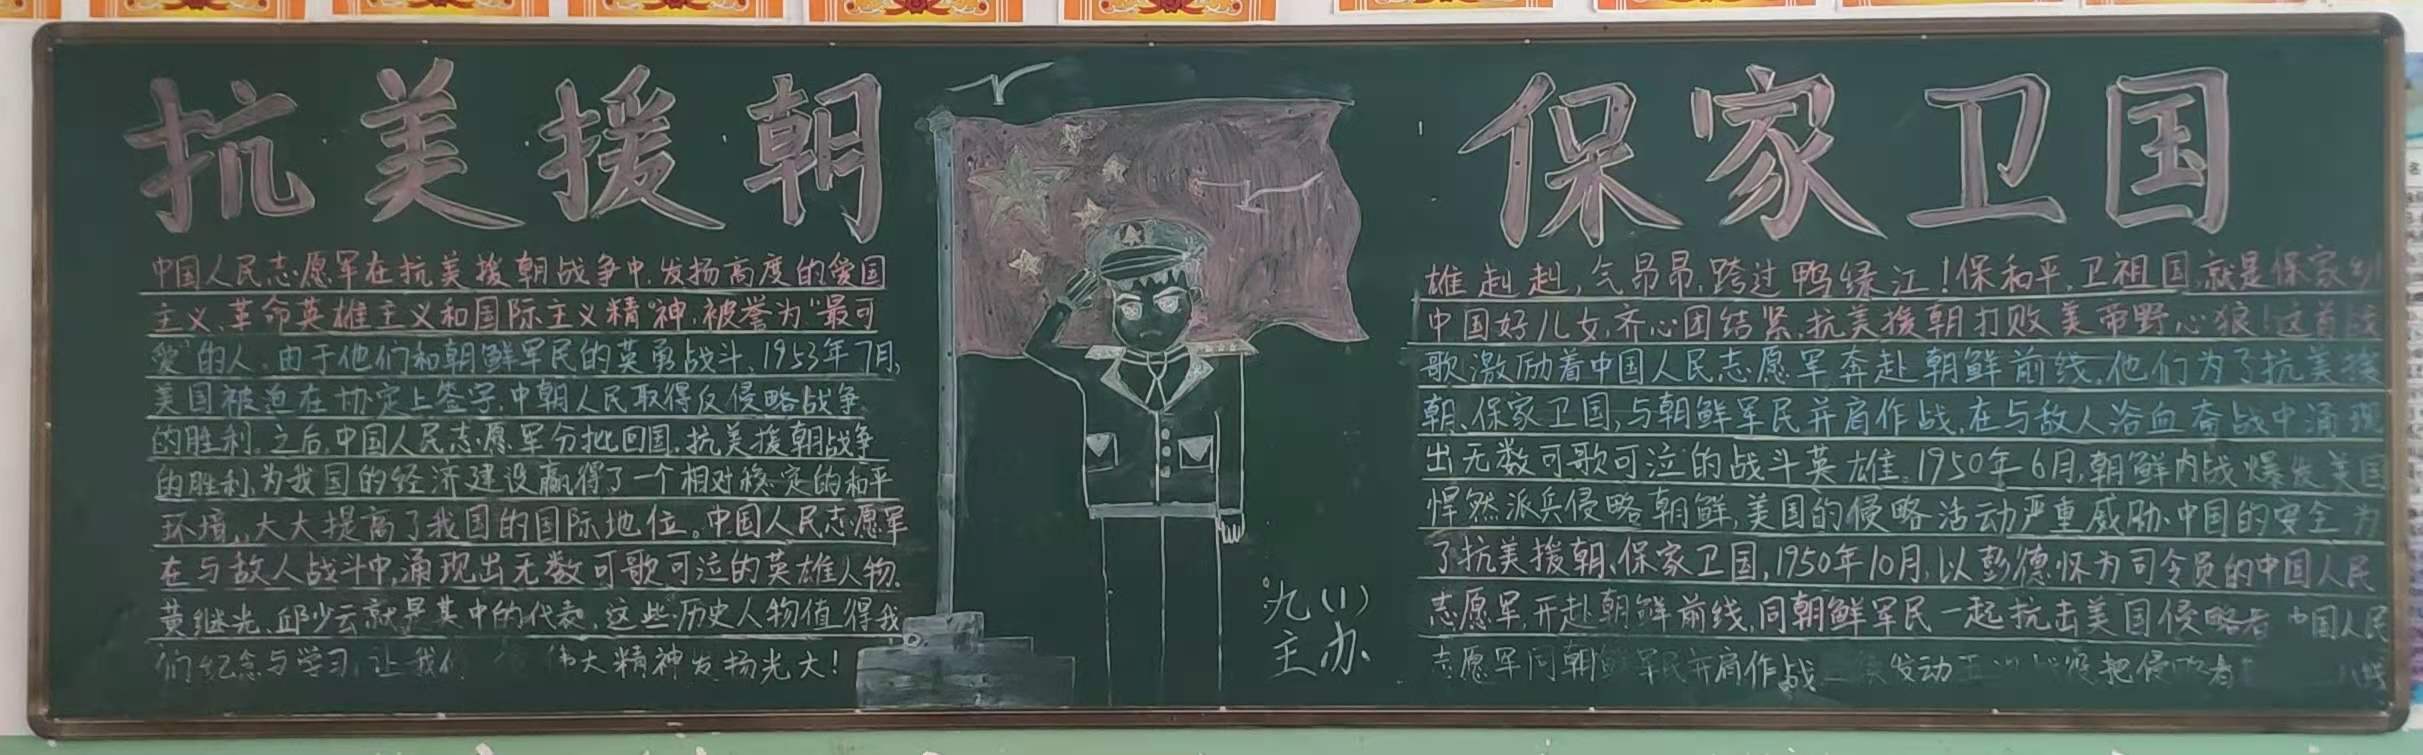 抗美援朝
中国人民志愿军在抗美援朝战争中,发扬高度的爱国
主义、革命英雄主义和国际主义精神,被誉为"最可
爱"的人。由于他们和朝鲜军民的英勇战斗,1953年7月,
美国被迫在协定上签字,中朝人民取得反侵略战争
的胜利。之后,中国人民志愿军分批回国,抗美援朝战争
的胜利,为我国的经济建设赢得了一个相对稳定的和平
环境,大大提高了我国的国际地位。中国人民志愿军
在与敌人战斗中,涌现出无数可歌可泣的英雄人物,
黄继光、邱少云就是其中的代表,这些历史人物值得我
们纪念与学习,让我们 伟大精神发扬光大!
九(1)
主办
保家卫国
雄赳赳,气昂昂,跨过鸭绿江!保和平,卫祖国,就是保家乡!
中国好儿女,齐心团结紧,抗美援朝打败美帝野心狼!这首战
歌激励着中国人民志愿军奔赴朝鲜前线,他们为了抗美援
朝、保家卫国,与朝鲜军民并肩作战,在与敌人浴血奋战中涌现
出无数可歌可泣的战斗英雄。1950年6月,朝鲜内战爆发美国
悍然派兵侵略朝鲜,美国的侵略活动严重威胁中国的安全为
了抗美援朝、保家卫国,1950年10月,以彭德怀为司令员的中国人民
志愿军,开赴朝鲜前线,同朝鲜军民一起抗击美国侵略者 中国人民
志愿军同朝鲜军民并肩作战 发动 战役把侵略者